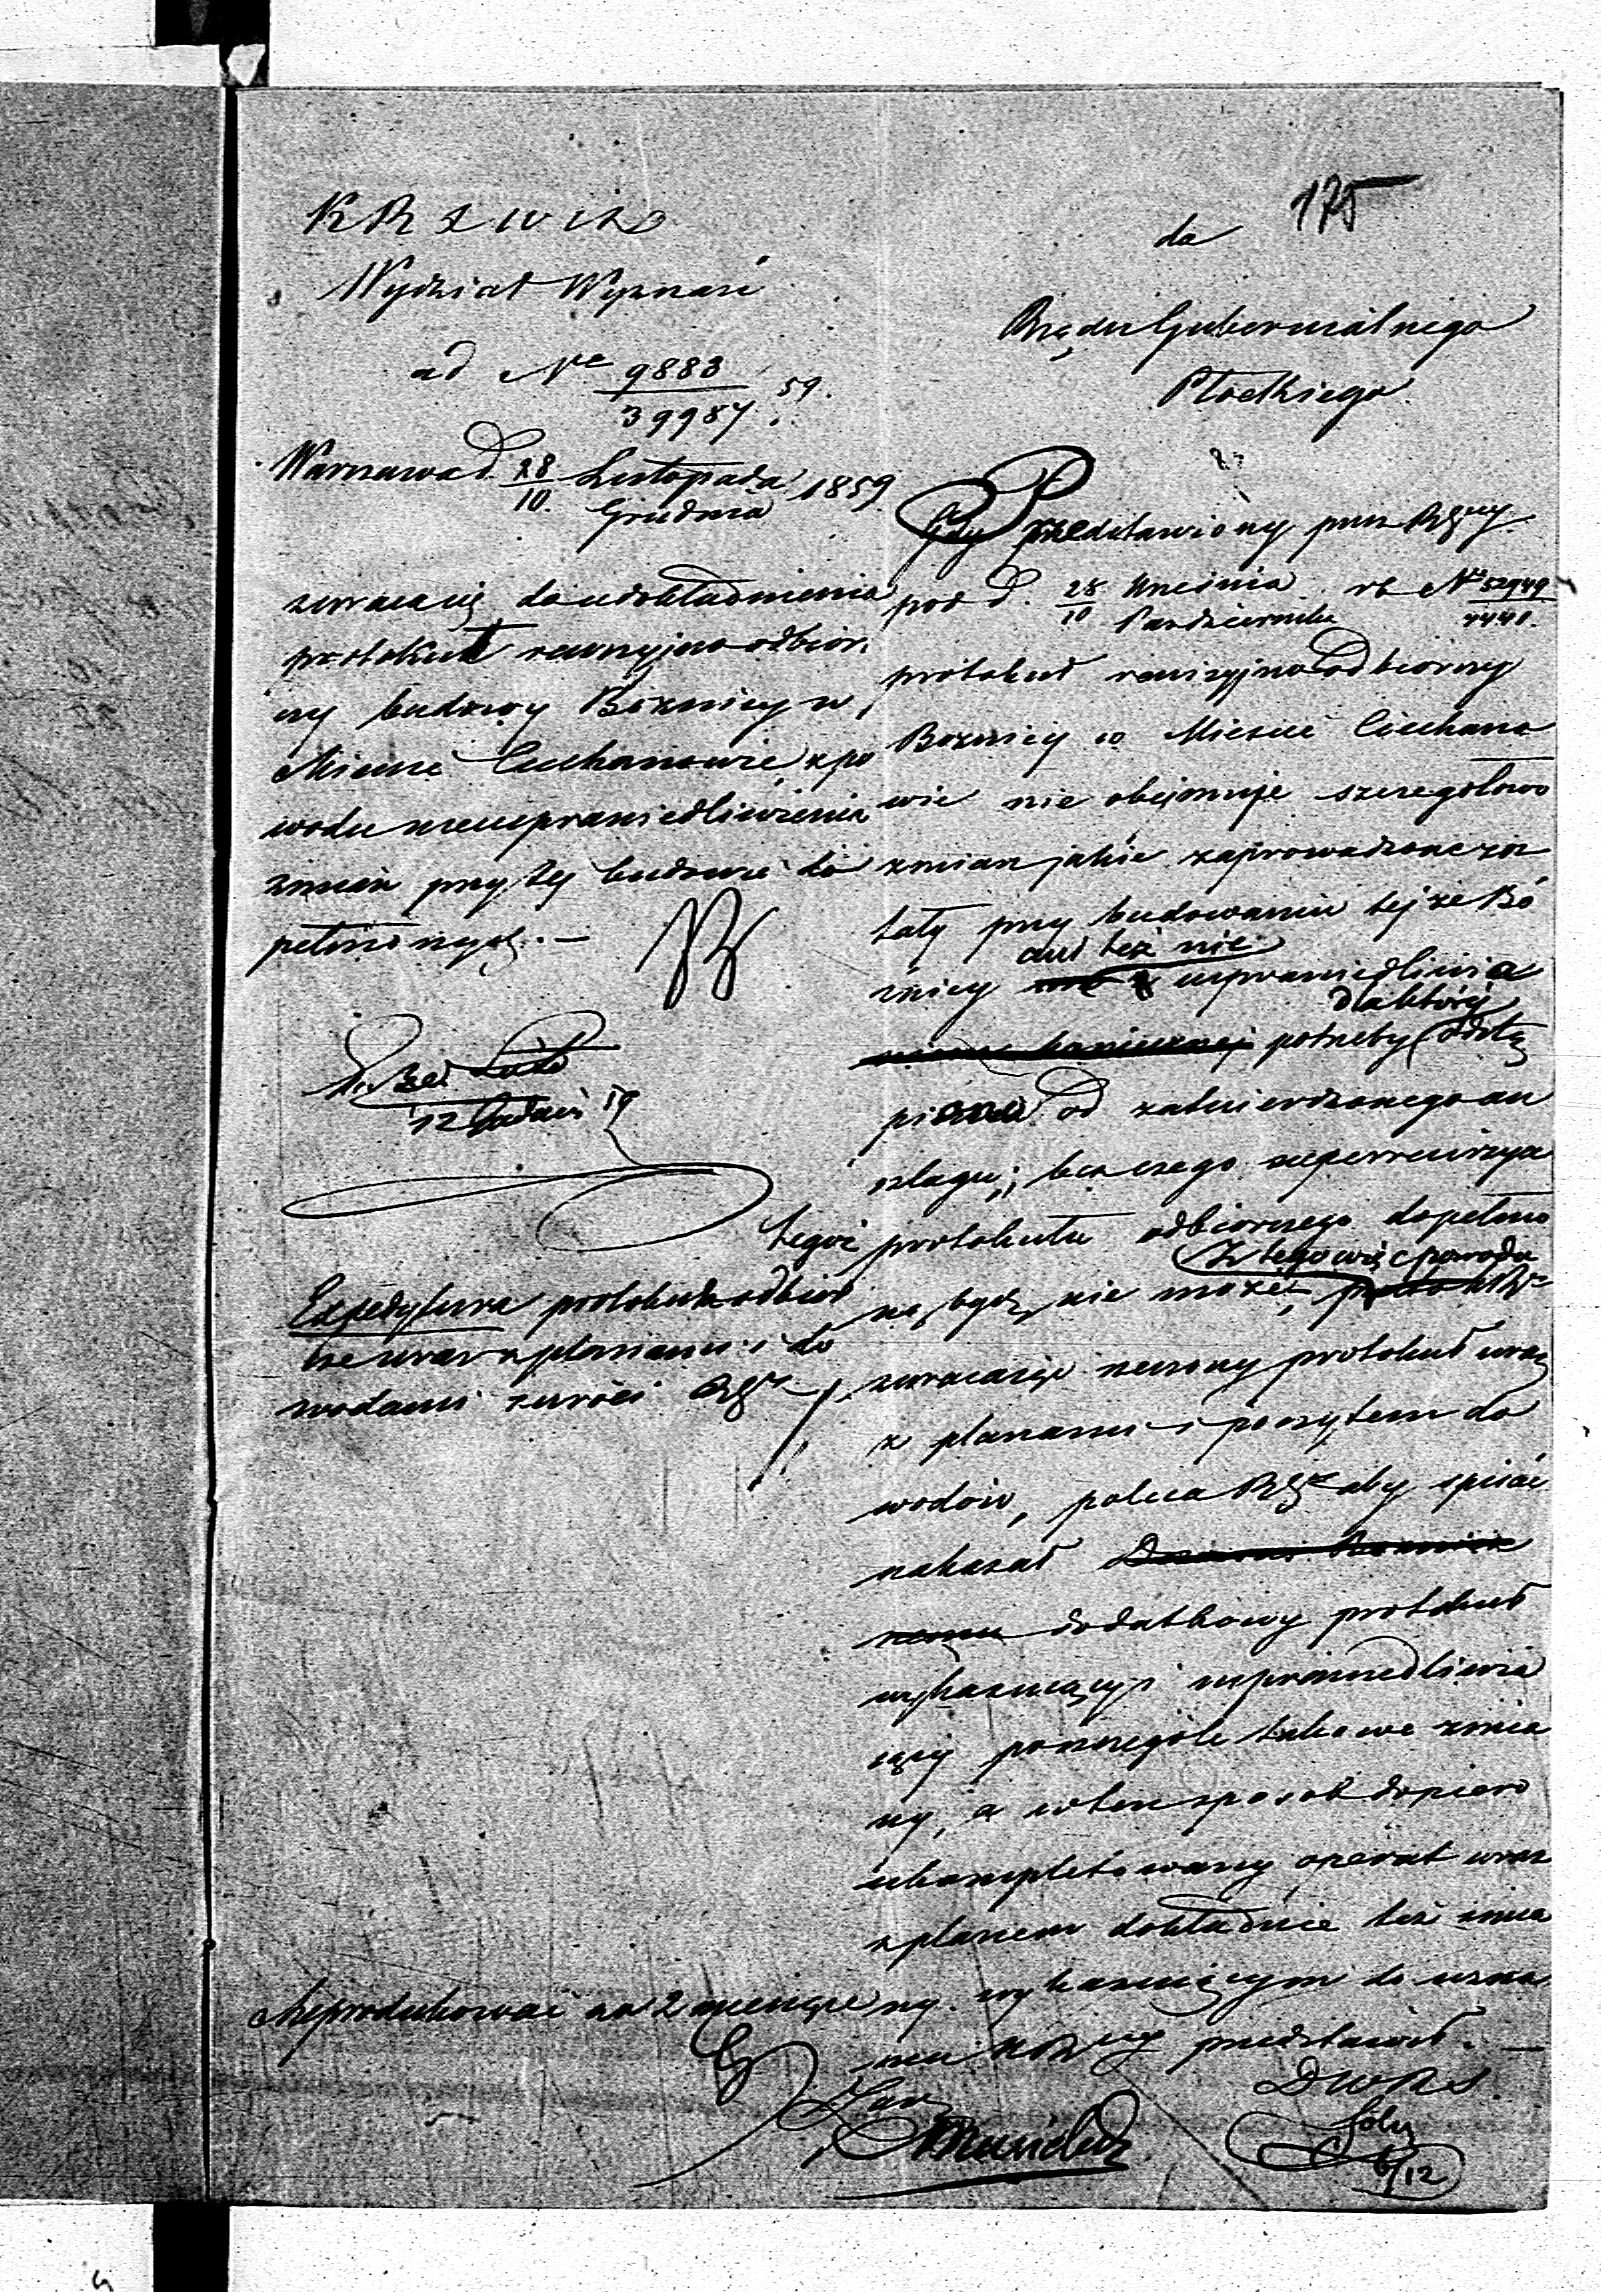 175
K R S W i D
Wydział Wyznań
ad Nro 9883/39987 59.
Warszawa d. 28/10. Listopada/Grudnia 1859
zwracając do udokładnienia
protokuł rewizyjno odbior
czy budowy Bóżnicy w
Mieście Ciechanowie, z po
wodu nieusprawiedliwienia
zmian przy tej budowie do
pełnionych. —
12 59
Expedytura protokuł odbior
wraz z planami i do
wodami zwróci RGu
Reprodukować za 2 miesiące
do
Rządu Gubernialnego
Płockiego
Gdy przedstawiony przez RGny
pod d. 28/10 Września/Października rb No 52949/
protokuł rewizyjno odbiorczy
Bożnicy w Mieście Ciechano
wie nie obejmuje szczegółowo
zmian jakie zaprowadzone zos
tały przy budowaniu tejże Bó
żnicy ani też nie usprawiedliwia
potrzeby dla której odstą
piono od zatwierdzonego an
szlagu; bez czego superrewizya
tegoż protokułu odbiorczego dopełnio
ną być nie może, Z tego więc powodu
zwracając rzeczony protokuł wraz
z planami i poszytem do
wodów, poleca RGu aby spisać
nakazał
dodatkowy protokuł
wykazujący i usprawiedliwia
jący poszczególe takowe zmia
ny, a w ten sposób dopiero
ukompletowany operat wraz
z planem dokładnie też zmia
ny wykazującym do uzna
nia przedstawił. —
D W R S.
6/12